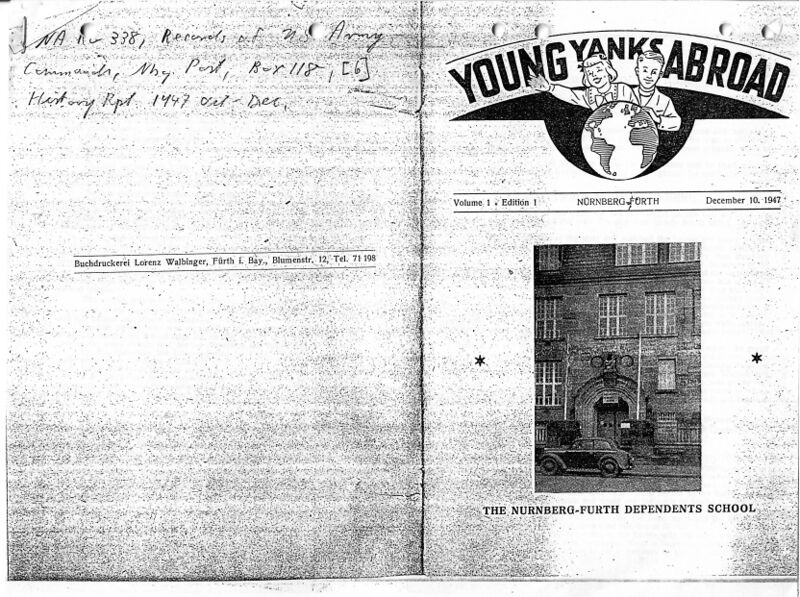 NA RG 338, Records of US Army
Commands, Nbg Post, Box 118, [6]
History Rpt 1947 Oct-Dec.
Buchdruckerei Lorenz Walbinger, Fürth i. Bay., Blumenstr. 12, Tel. 71 198
YOUNG YANKS ABROAD
Volume 1 • Edition 1 NÜRNBERG-FÜRTH December 10. 1947
THE NURNBERG-FURTH DEPENDENTS SCHOOL